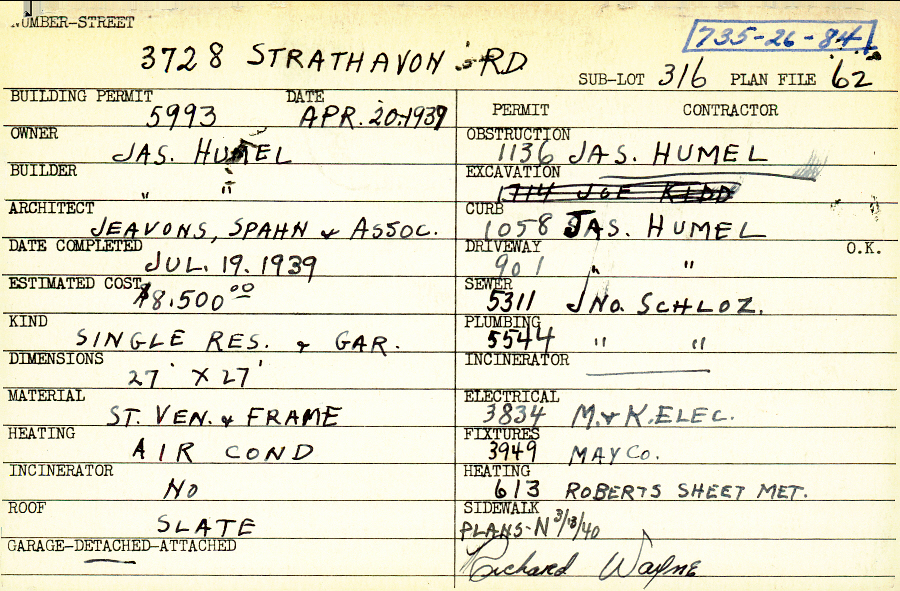 NUMBER-STREET
735-26-84
3728 STRATHAVON RD
SUB-LOT 316 PLAN FILE 62
BUILDING PERMIT DATE
5993 APR. 20.1939
OWNER
JAS. HUMEL
BUILDER
" "
ARCHITECT
JEAVONS, SPAHN & ASSOC.
DATE COMPLETED
JUL. 19. 1939
ESTIMATED COST
$8.500 00
KIND
SINGLE RES. & GAR.
DIMENSIONS
27' X 27'
MATERIAL
ST. VEN. & FRAME
HEATING
AIR COND
INCINERATOR
NO
ROOF
SLATE
GARAGE-DETACHED-ATTACHED
PERMIT CONTRACTOR
OBSTRUCTION
1136 JAS. HUMEL
EXCAVATION
1714 JOE KIDD
CURB
1058 JAS. HUMEL
DRIVEWAY O.K.
901 " "
SEWER
5311 JNO. SCHLOZ.
PLUMBING
5544 " "
INCINERATOR
ELECTRICAL
3834 M. & K. ELEC.
FIXTURES
3949 MAY CO.
HEATING
613 ROBERTS SHEET MET.
SIDEWALK
PLANS-N 3/13/40
Richard Wayne